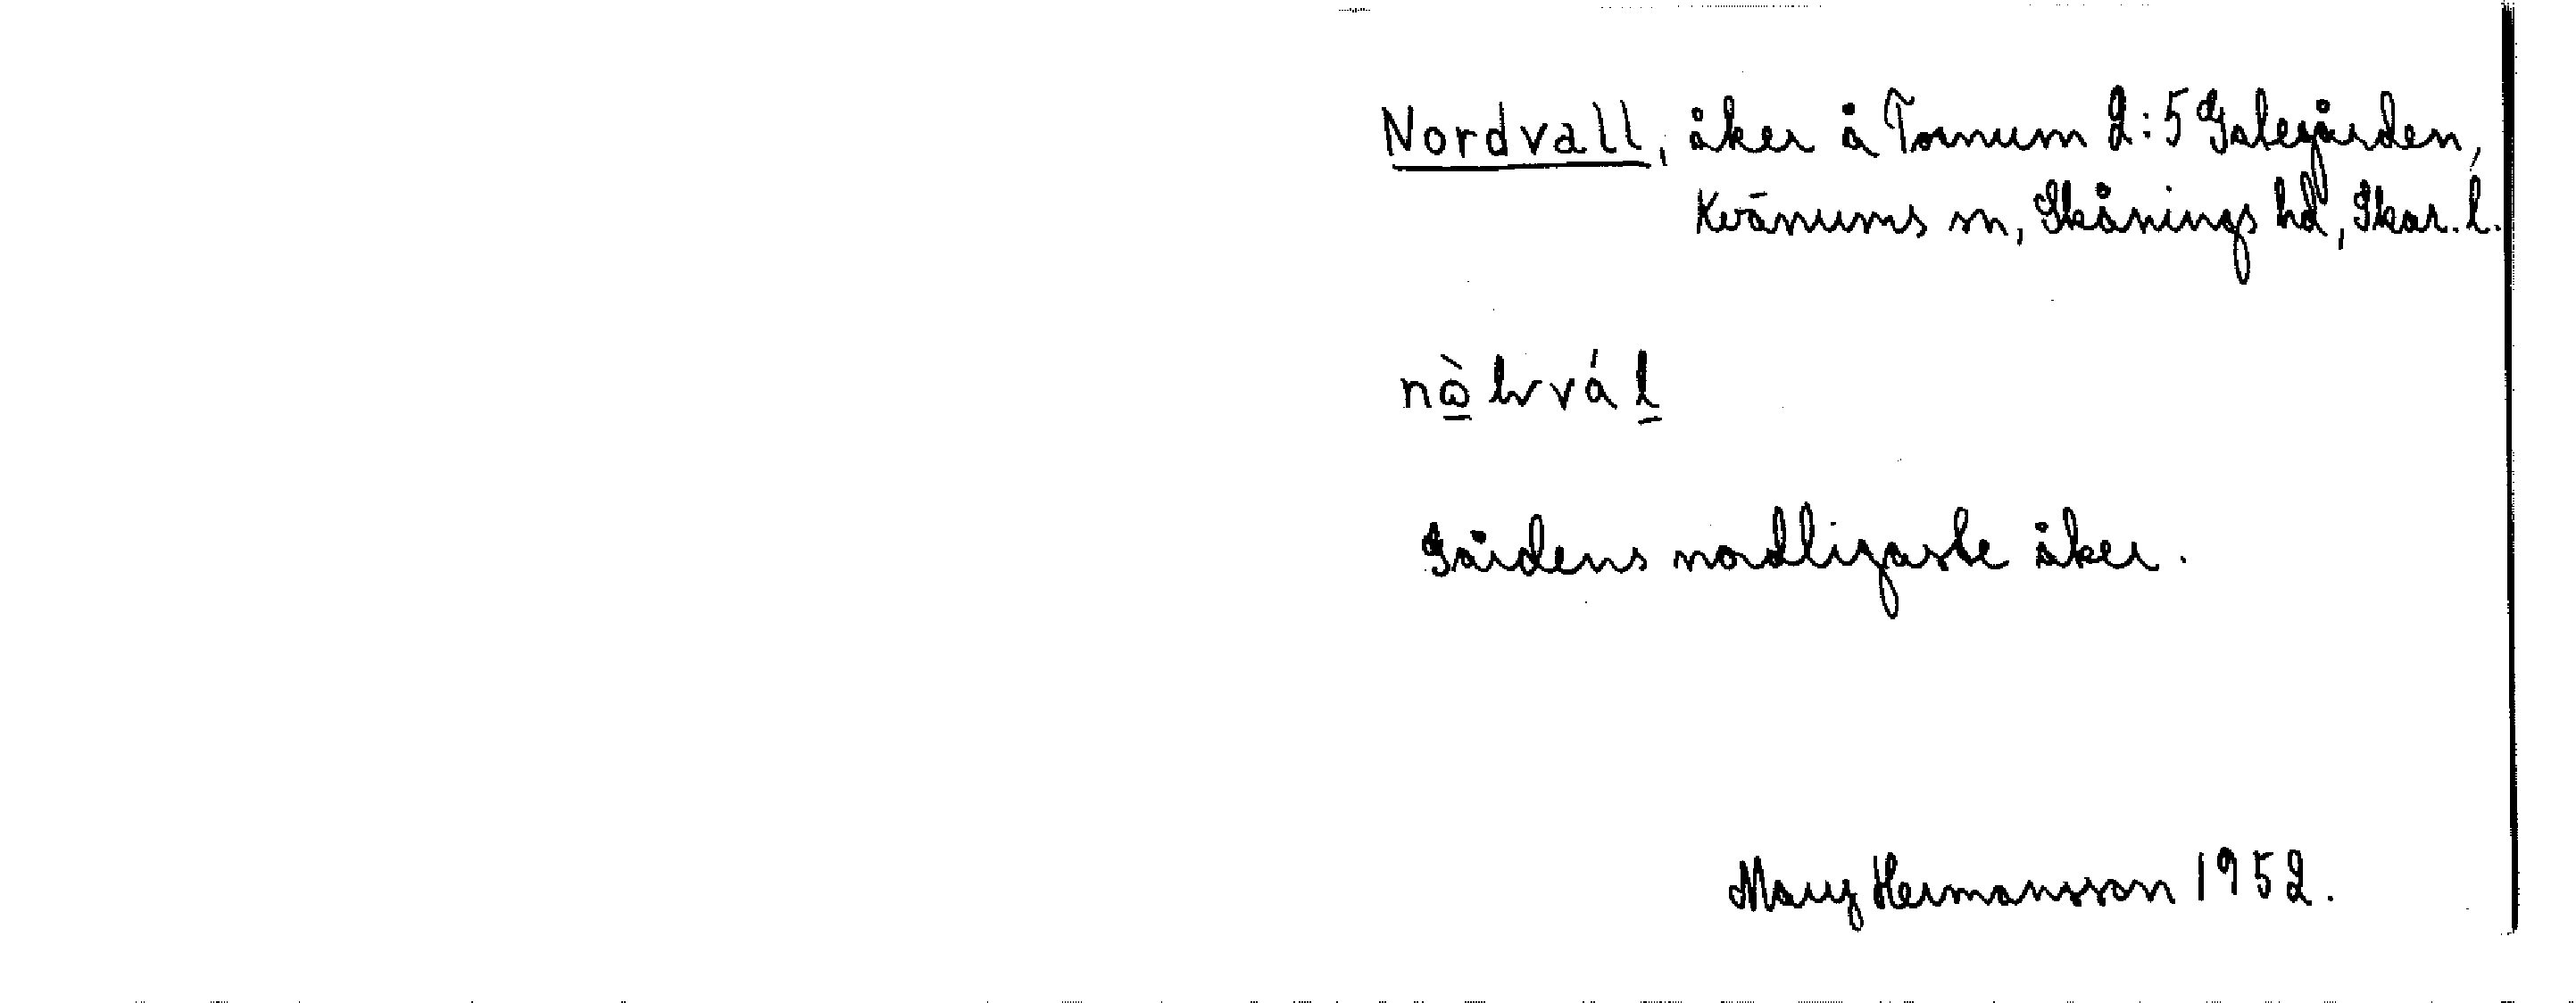 Nordvall, åker å Tornum 2:5 Galegården,
Kvänums sn, Skånings hd, Skar. l.
Gårdens nordligaste åker.
Mary Hermansson 1952.